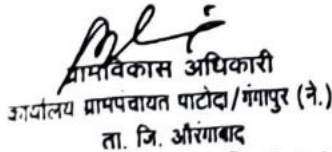 ग्रामविकास अधिकारी
कार्यालय ग्रामपंचायत पाटोदा/गंगापुर (ने.)
ता. जि. औरंगाबाद